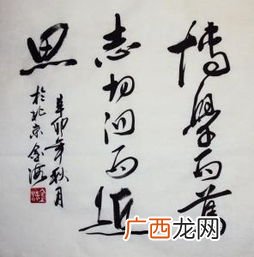 博學而篤
志切问而近
思
辛卯年秋月
於北京
广西龙网